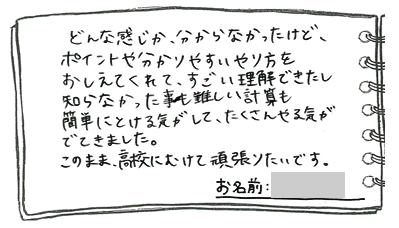 どんな感じか、分からなかったけど、
ポイントや分かりやすいやり方を
おしえてくれて、すごい理解できたし
知らなかった事も難しい計算も
簡単にとける気がして、たくさんやる気が
でてきました。
このまま、高校にむけて頑張りたいです。
お名前: